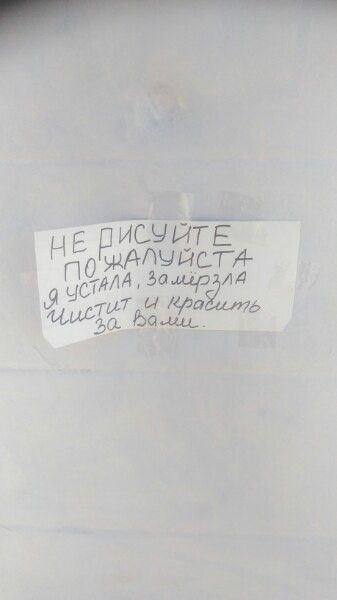 НЕ РИСУЙТЕ
ПОЖАЛУЙСТА
Я УСТАЛА, Замёрзла
Чистит и красить
за Вами.